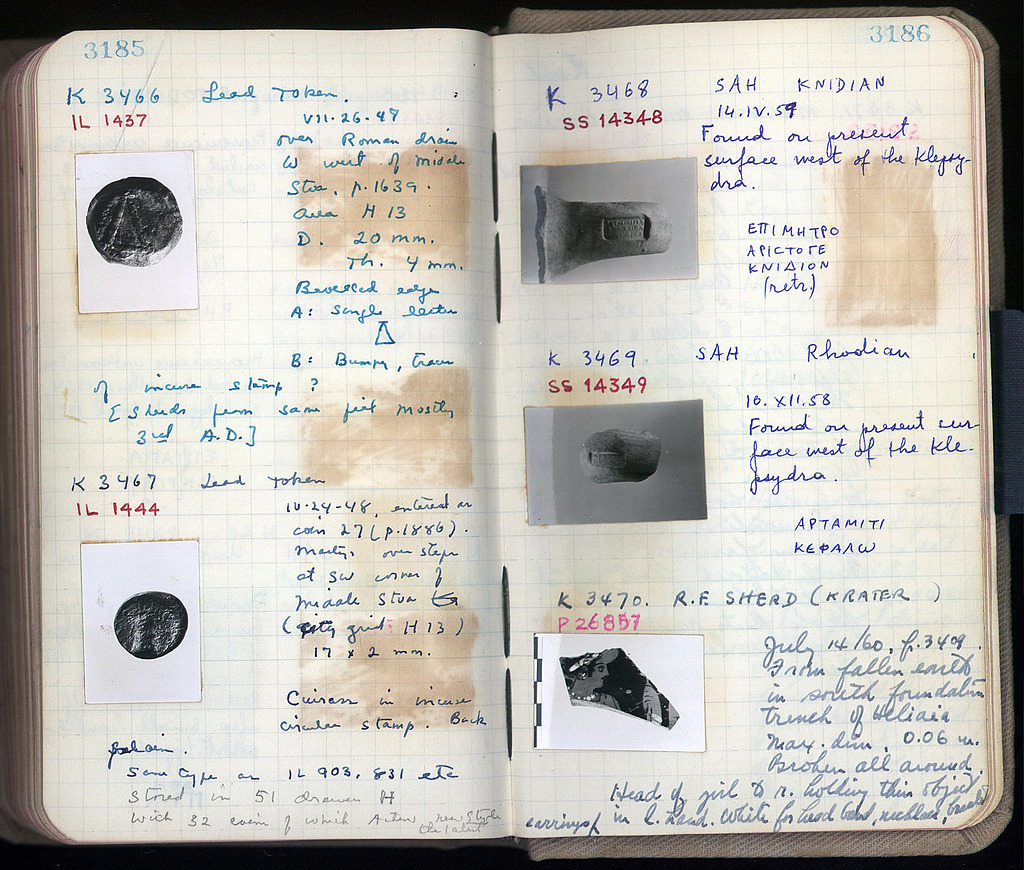 3185
K 3466 Lead Token.
IL 1437
VII-26-47
over Roman drain
W west of middle
Stoa, p.1639.
Area H 13
D. 20 mm.
Th. 4 mm.
Bevelled edge
A: single letter
Δ
B: Bumpy, traces
of incuse stamp ?
[Sherds from same fill mostly
3rd A.D.]
K 3467 Lead Token
IL 1444
IV-24-48, entered as
coin 27 (p.1886).
over steps
at SW corner of
Middle Stoa
(city grid: H 13)
17 x 2 mm.
Cuirass in incuse
circular stamp. Back
plain.
Same type as IL 903, 831 etc
Stored in 51 drawer H
With 32 coins of which
3186
K 3468 SAH KNIDIAN
SS 14348
14.IV.59
Found on present
surface west of the Klepsy-
dra.
ΕΠΙΜΗΤΡΟ
ΑΡΙCΤΟΓΕ
ΚΝΙΔΙΟΝ
(retr.)
K 3469 SAH Rhodian
SS 14349
10.XII.58
Found on present sur-
face west of the Kle-
psydra.
ΑΡΤΑΜΙΤΙ
ΚΕΦΑΛω
K 3470. R.F. SHERD (KRATER)
P 26857
July 14/60, p.3409.
From fallen earth
in south foundation
trench of Heliaia
Max. dim. 0.06 m.
Broken all around.
Head of girl to r. holding thin object
in l. hand. White for head band, necklace, bracelet
earrings